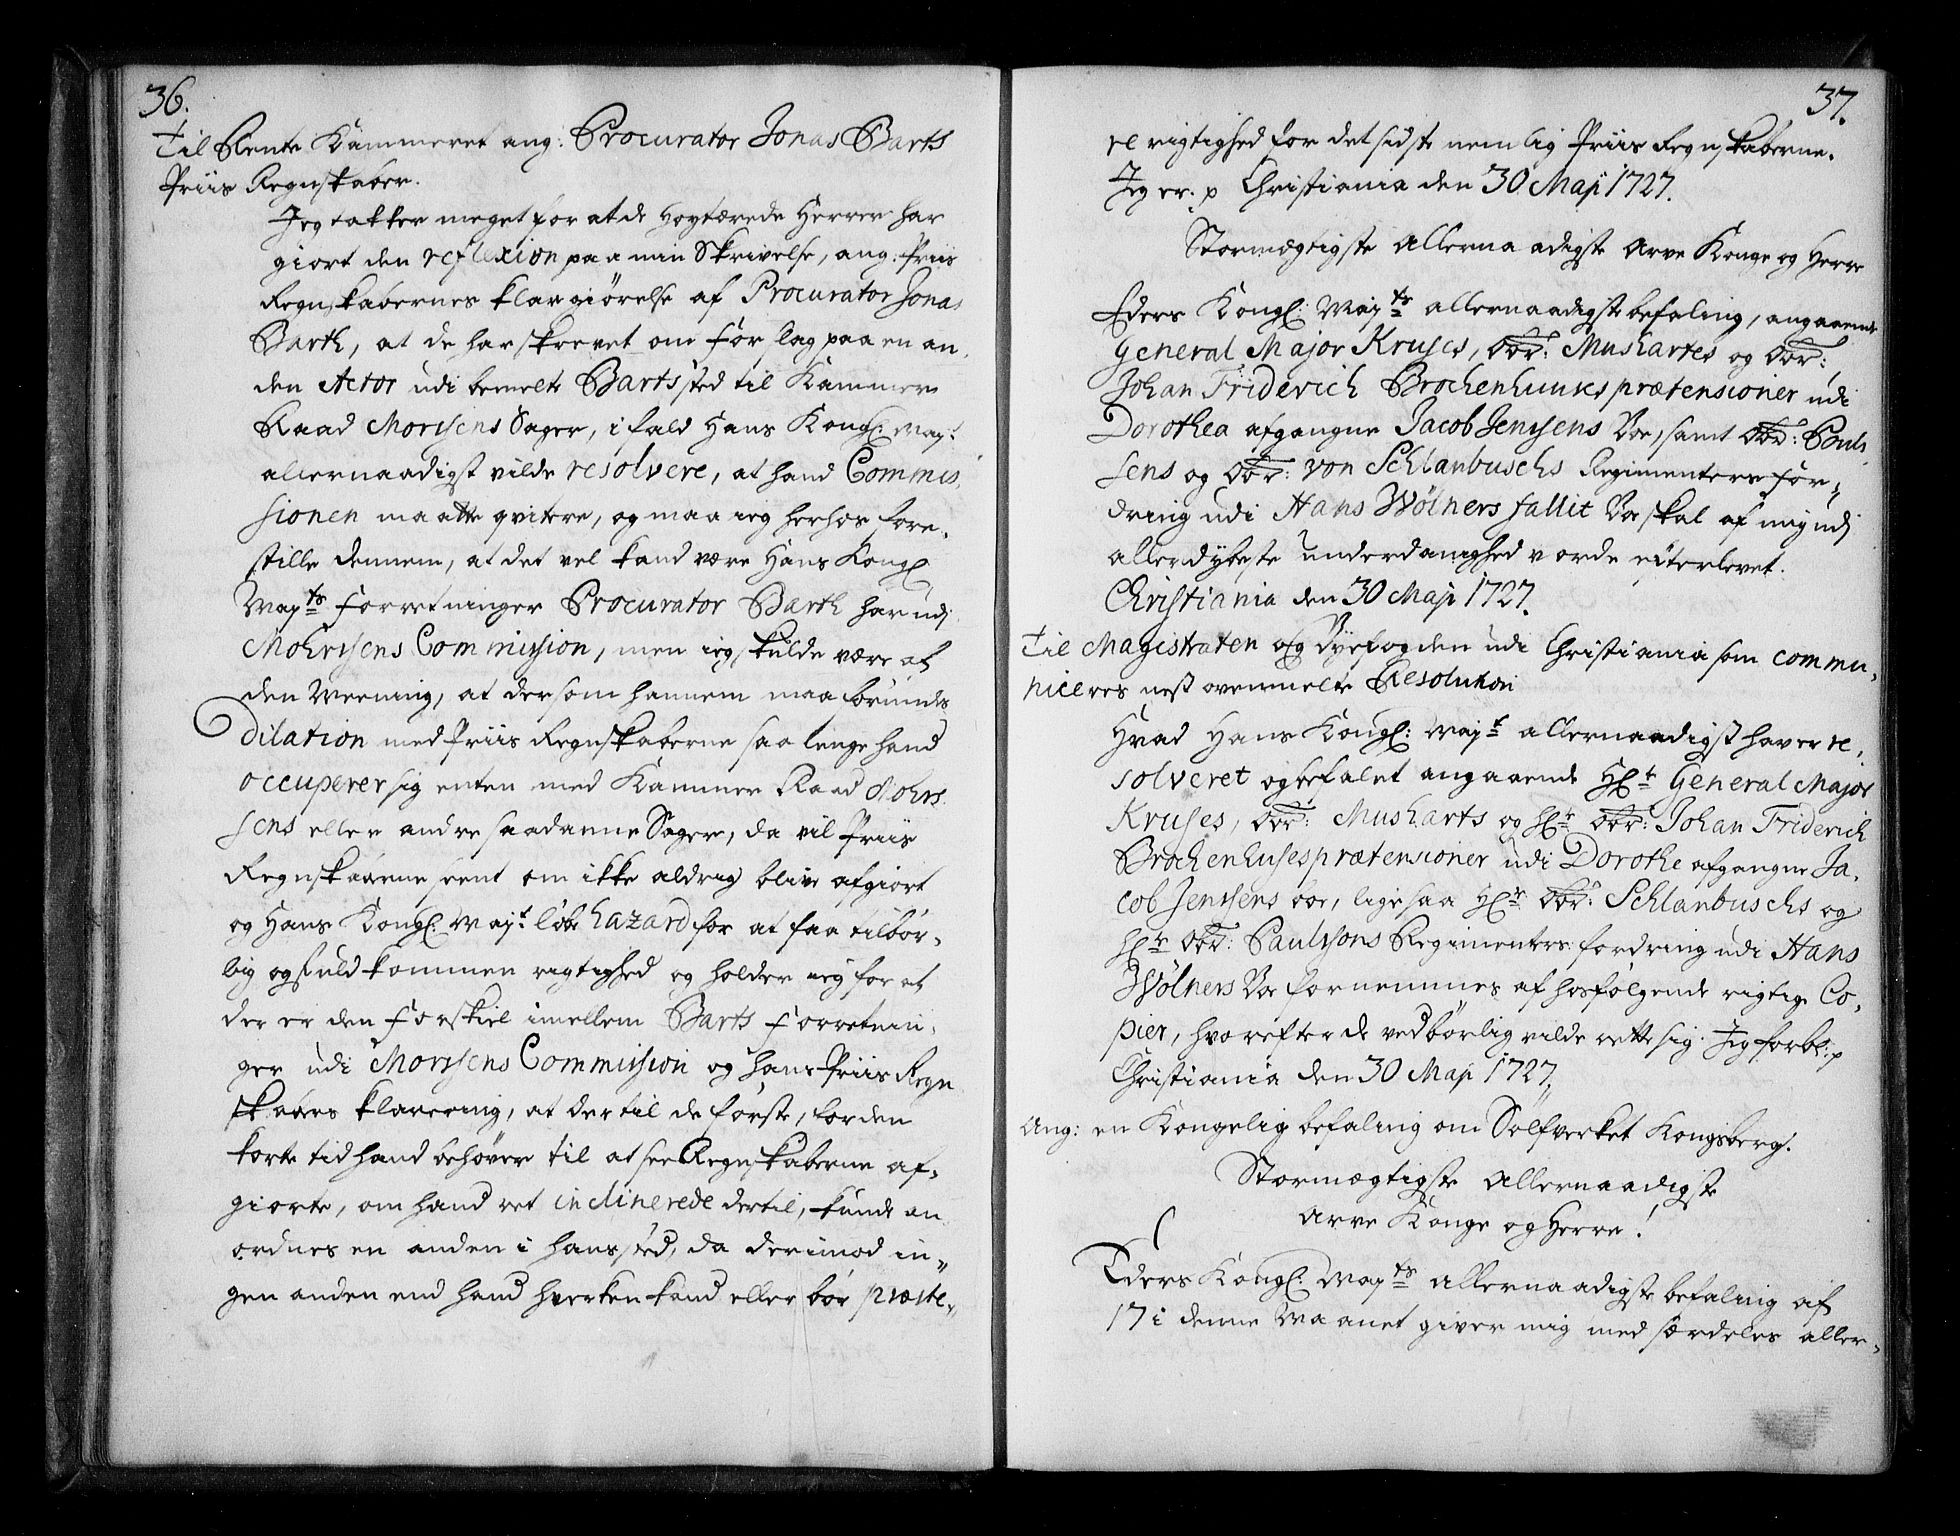 36.
Til Rente Kammeret ang: Procurator Jonas Barts
Priis Regnskaber.
Jeg takker meget for at de Høytærede Herrer har
giort den reflexion paa min Skrivelse, ang: Priis
Regnskabernes klargiørelse af Procurator Jonas
Barth, at de har skrevet om forslag paa en an,
den Actor udi bemelte Barts sted til Kammer
Raad Morsens Sager, i fald Hans Kongl: May.t
allernaadigst vilde resolvere, at hand Commis,
sionen maatte qvitere, og maa ieg herhos fore,
stille dennem, at det vel kand være Hans Kongl
May.ts forretninger Procurator Barth har udj
Mohrsens Commission, men ieg skulde være af
den Meening, at dersom hannem maa forundes
Dilation med Priis Regnskaberne saa lenge hand
occuperer sig enten med Kammer Raad Mohrs
sens eller andre saadanne Sager, da vil Priis
Regnskaberne seent om ikke aldrig blive afgiort
og Hans Kongl: May.t løbe hazard for at faa tilbør,
lig og fuldkommen rigtighed og holder ieg for at
der er den forskiel imellem Barts forretnin,
ger udi Morsens Commission og hans Priis Regn
skabers klareering, at der til de første, for den
korte tid hand behøver til at see Regnskaberne af,
giorte, om hand ret inclinerede dertil, kunde an
ordnes en anden i hans sted, da derimod in,
gen anden end hand hverken kand eller bør præste,
37.
re rigtighed for det sidste nemlig Priis Regnskaberne.
Jeg er. p Christiania den 30 Maji 1727.
Stormægtigste Allernaadigste Arve Konge og Herre
Eders Kongl: May.ts allernaadigste befaling, angaaende
General Major Kruses, Obr: Mushartes og Obr:
Johan Friderich Brochenhuuses prætensioner udi
Dorothea afgangne Jacob Jenssens Boe, samt Obr: Pouls
sens og Obr: von Schlanbuschs Regimenters for,
dring udi Hans Wølners fallit Boe skal af mig udj
allerdybeste underdanighed vorde efterlevet.
Christiania den 30 Maji 1727.
Til Magistraten og Byefogden udi Christiania som commu,
niceres nest ovenmelte Resolution
Hvad Hans Kongl: May.t allernaadigst haver re,
solveret og befalet angaaende Hl.r General Major
Kruses, Obr: Musharts og Hl.r Obr: Johan Friderich
Brochenhuses prætensioner udi Dorothe afgangne Ja,
cob Jenssens boe, ligesaa Hl.r Obr: Schlanbuschs og
Hl.r Obr: Paulssons Regimenters fordring udi Hans
Wølners Boe fornemmes af hosfølgende rigtige Co,
pier, hvorefter de vedbørlig vilde rette sig. Jeg forbl: p
Christiania den 30 Maji 1727.
Ang: en Kongelig befaling om Sølfverket Kongsberg.
Stormægtigste Allernaadigste
Arve Konge og Herre!
Eders Kongl: May.ts Allernaadigste befaling af
17 i denne Maanet giver mig med særdeles aller,